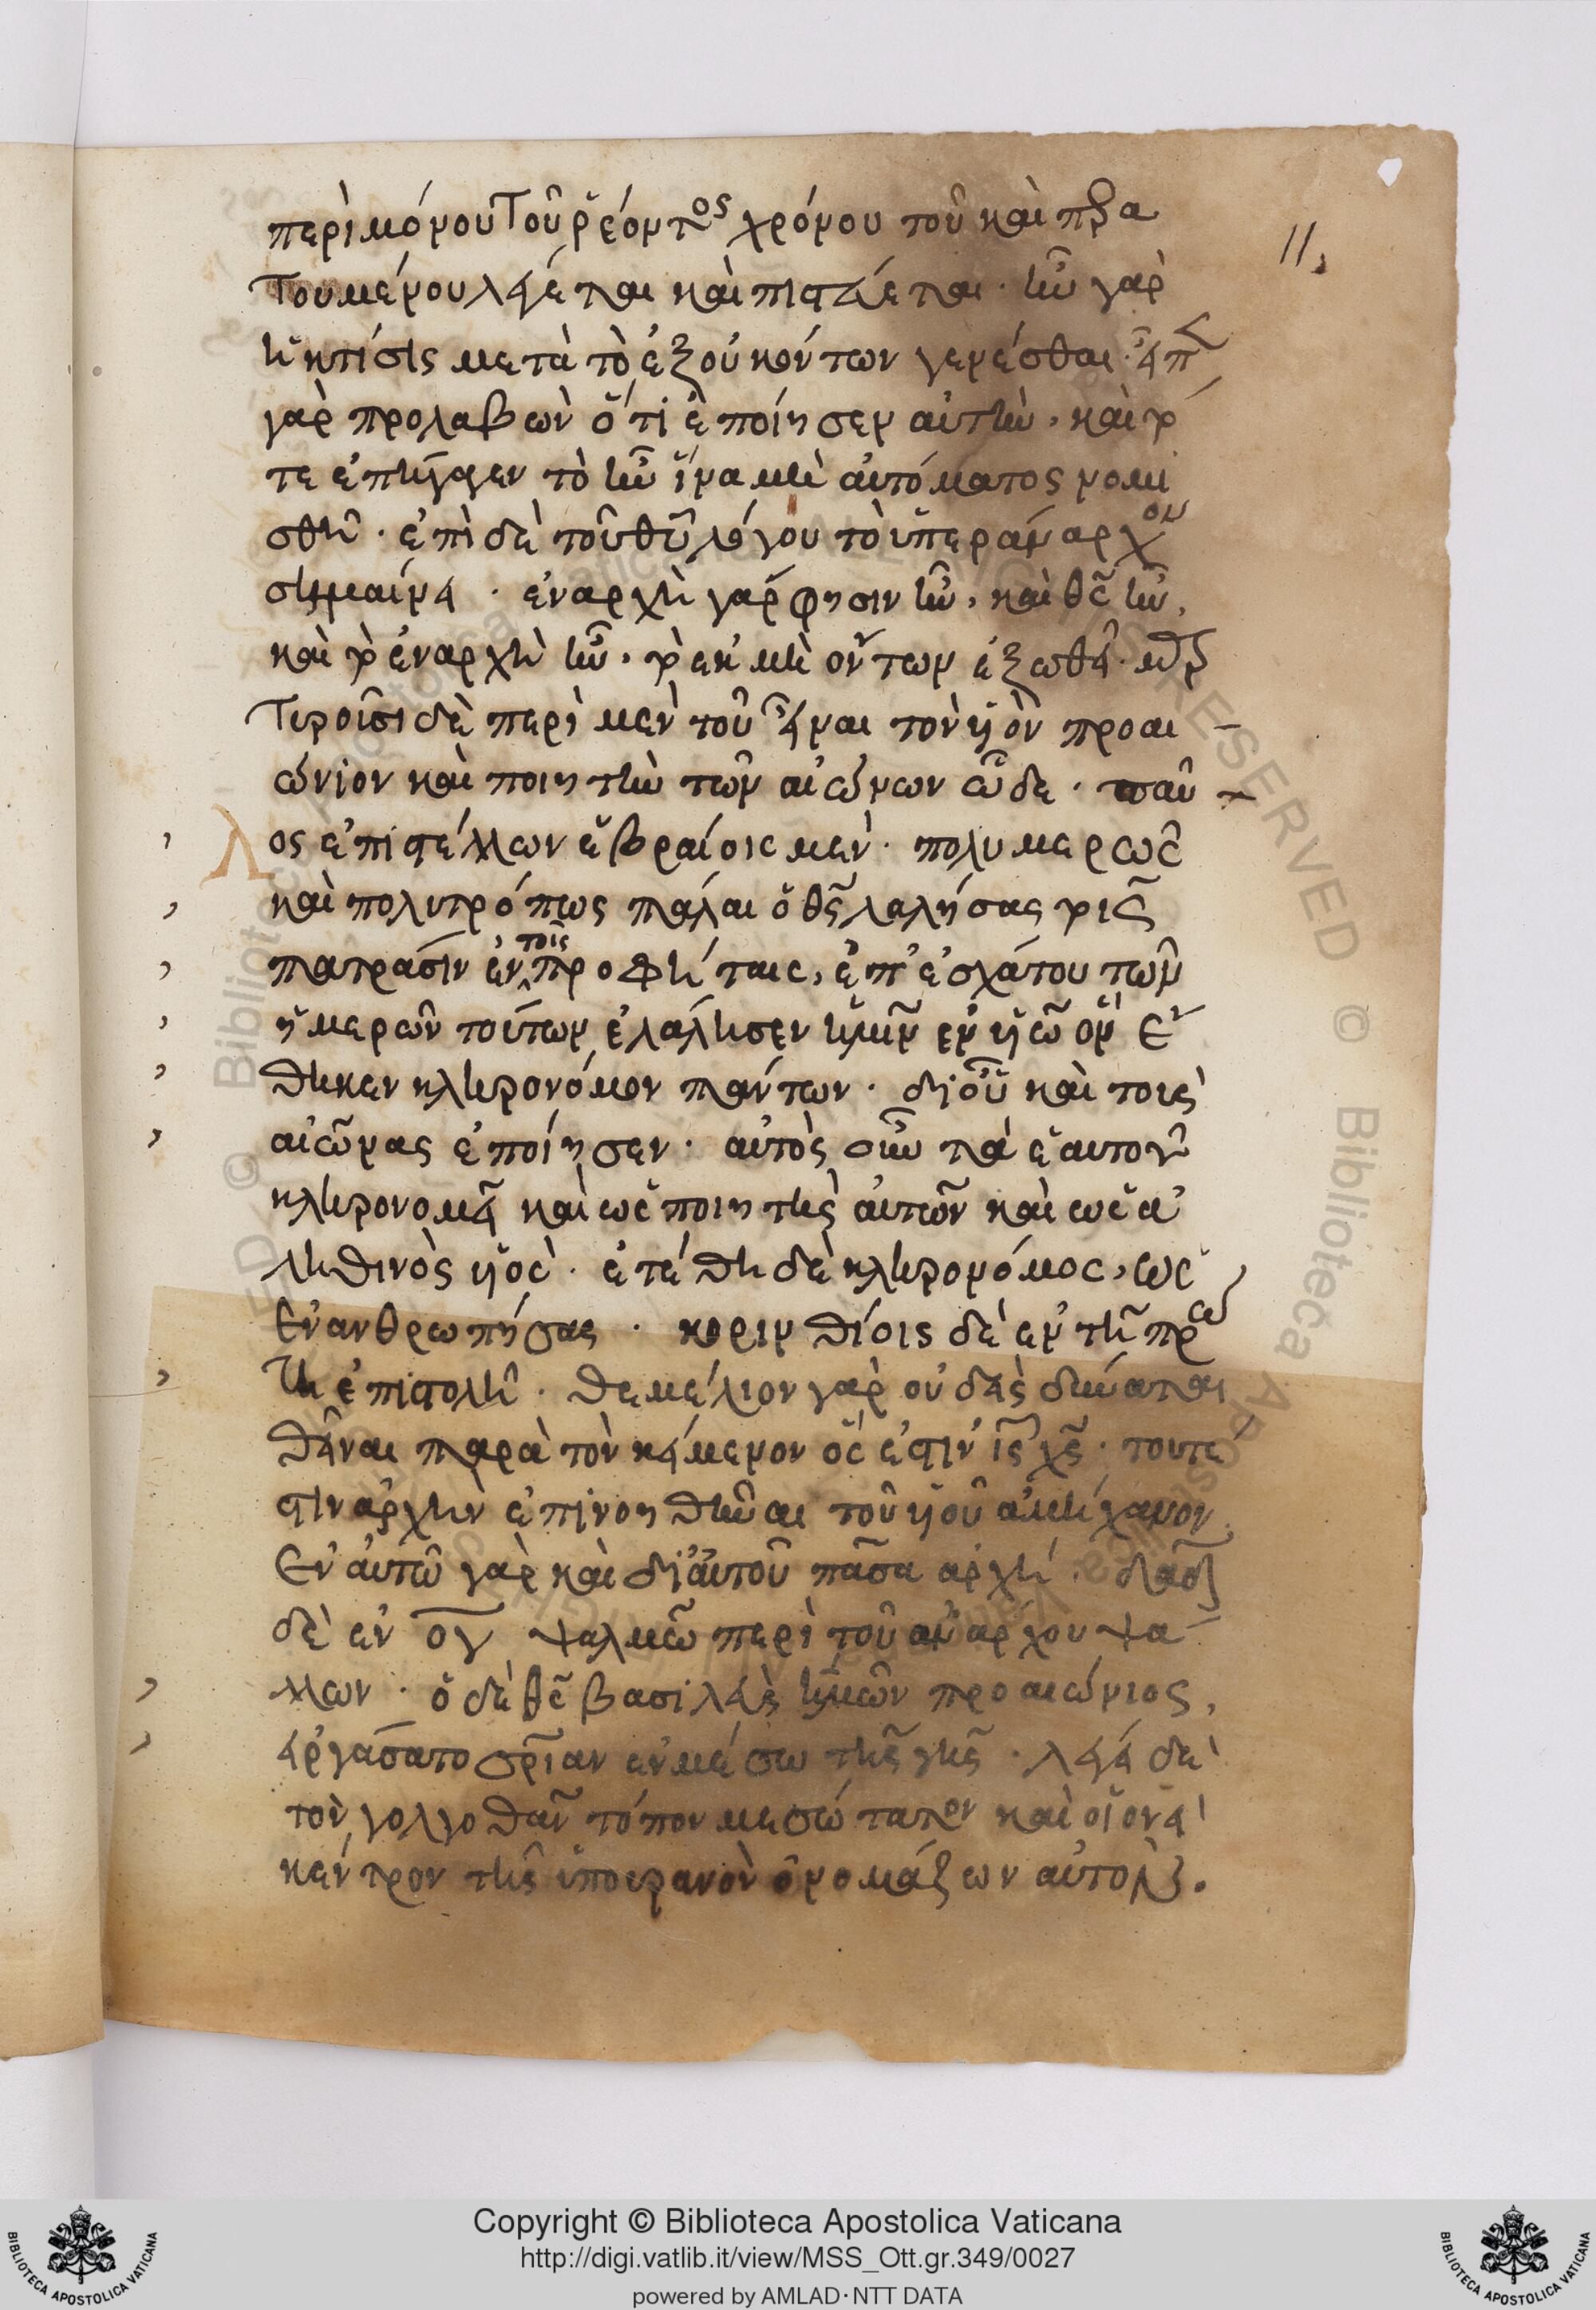 περὶ μόνου τοῦ ῥέοντος χρόνου τοῦ καὶ πρα
τουμένου λέγεται καὶ πιστεύεται· ἦν γὰρ
ἡ κτίσις μετὰ τὸ ἐξ οὐκ όντων γενέσθαι· εἶπε
γὰρ προλαβὼν ὅτι ἐποίησεν αὐτὴν· καὶ
τε ἐπήγαγεν τὸ ἦν ἵνα μὴ αὐτόματος νομι
σθῆ· ἐπὶ δὲ τοῦ θυ λόγου τὸ ὑπεράναρχον
σημαίνει· ἐν ἀρχῆ γάρ φησιν ἦν, καὶ θς ἦν,
καὶ ἐν ἀρχῆ ἦν, ἐκ μὴ ὄντων ἐξωθεῖ·
περὶ μὲν τοῦ εἶναι τὸν υἱὸν προαι
ώνιον καὶ ποιητὴν τῶν αἰώνων ὧδε· παῦ
λος ἐπιστέλλων ἑβραίοις μὲν· πολυμερῶς
καὶ πολυτρόπως πάλαι ὁ θς λαλήσας τοῖς
πατράσιν ἐν τοῖς προφήταις, ἐπ' ἐσχάτου τῶν
ἡμερῶν τούτων ἐλάλησεν ἡμῖν ἐν υἱῶ ὃν ἔ
θηκεν κληρονόμον πάντων· δι οὗ καὶ τοὺς
αἰῶνας ἐποίησεν· αὐτὸς οὖν τὰ ἑαυτοῦ
κληρονομεῖ καὶ ὡς ποιητὴς αὐτῶν καὶ ὡς ἀ
ληθινὸς υἱός· ἐτέθη δὲ κληρονόμος, ὡς
ἐνανθρωπήσας· κορινθίοις δὲ ἐν τῆ πρώ
τη ἐπιστολῆ· θεμέλιον γὰρ οὐδεὶς δύναται
θεῖναι παρὰ τὸν κείμενον ὅς ἐστιν ις χς· τουτέ
στιν ἀρχὴν ἐπινοηθῆναι τοῦ υἱοῦ ἀμήχανον.
ἐν αὐτῶ γὰρ καὶ δι αὐτοῦ πᾶσα ἀρχή· δαδ
δὲ ἐν ογ ψαλμῶ περὶ τοῦ ἀνάρχου ψά
λλων· ὁ δὲ θς βασιλεὺς ἡμῶν προαιώνιος,
εἰργάσατο σρίαν ἐν μέσω τῆς γῆς· λέγει δὲ
τὸν γολγοθᾶν τόπον μεσώτατον καὶ οἱονεὶ
κέντρον τῆς ὑπουρανὸν ὀνομάζων αὐτολεξ.
11.
Copyright © Biblioteca Apostolica Vaticana
http://digi.vatlib.it/view/MSS_Ott.gr.349/0027
powered by AMLAD·NTT DATA